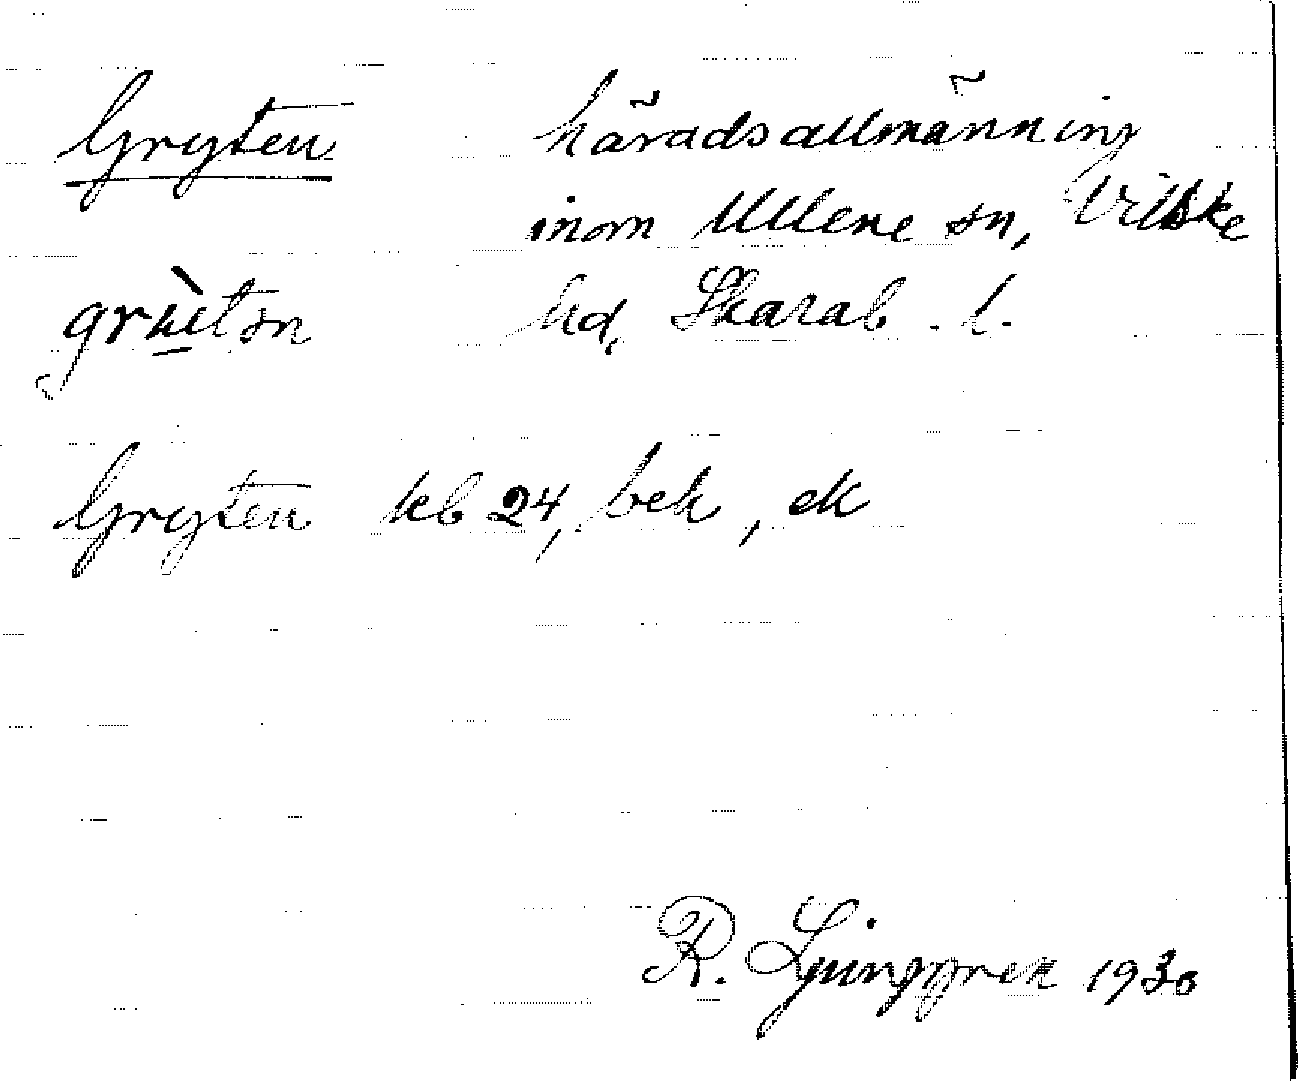 Gryten häradsallmänning
inom Ullene sn, Vilske
hd, Skarab. l.
Gryten kb 24, bek, ek
R. Ljunggren 1930